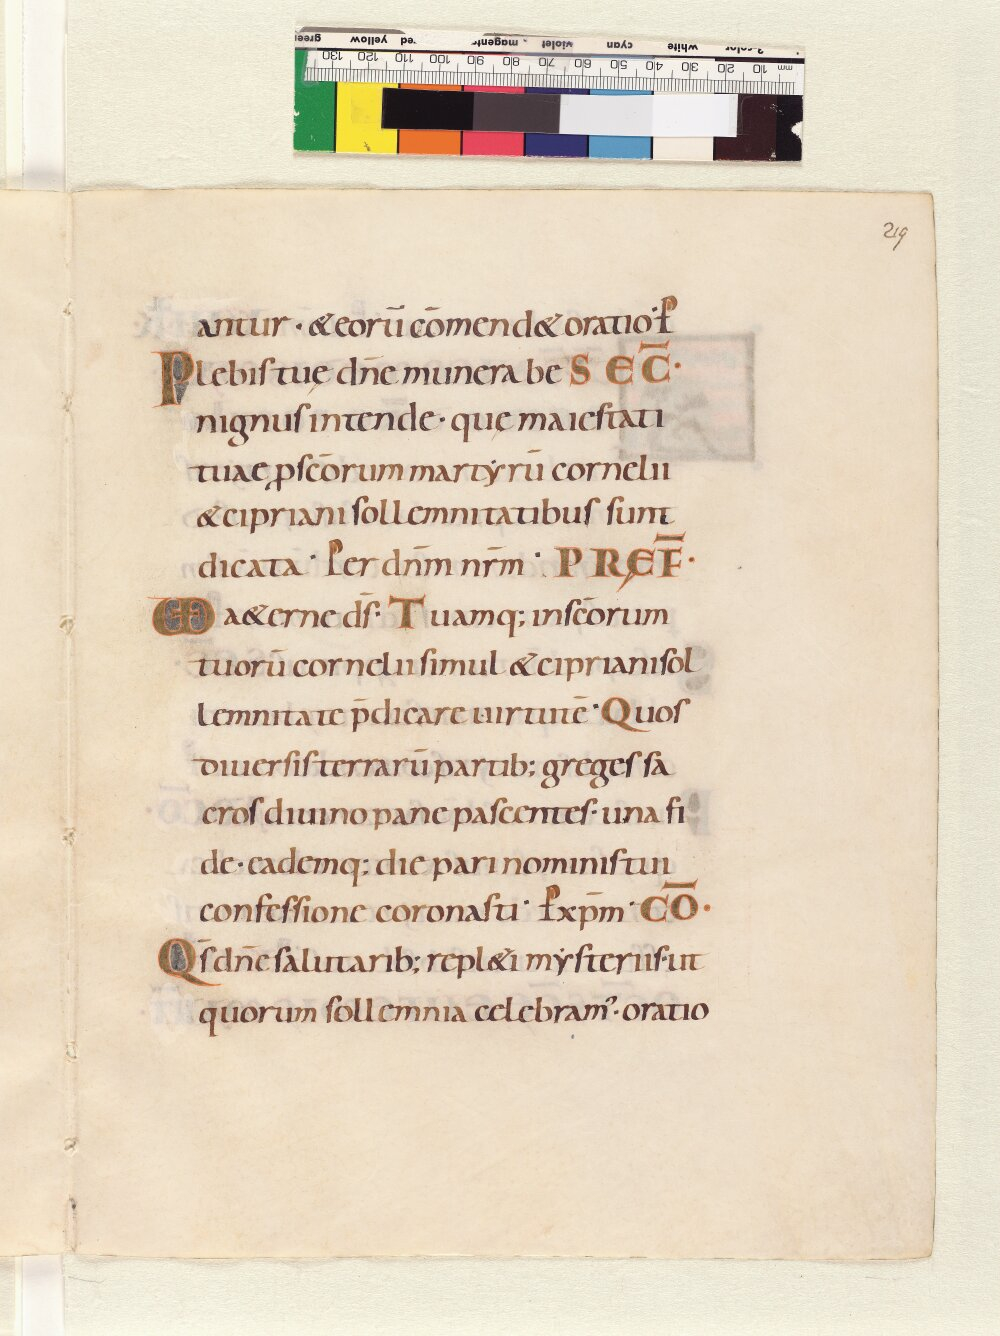 219
antur · & eorū cōmend& oratio · P̄
Plebis tuę dn̄e munera be SEC̄ ·
nignus intende · quę maiestati
tuae p̱ sc̄orum martẏrū cornelii
& cipriani sollemnitatibus sunt
dicata · Per dn̄m nr̄m · PREF̄ ·
VD a&erne ds̄ · Tuamq; in sc̄orum
tuorū cornelii simul & cipriani sol
lemnitate p̄dicare uirtutē · Quos
diuersis terrarū partib; greges sa
cros diuino pane pascentes · una fi
de · eademq; die pari nominis tui
confessione coronasti · P̄ xp̄m · CŌ ·
Qs̄ dn̄e salutarib; repl&i mẏsteriis · ut
quorum sollemnia celebram᾿ · oratio